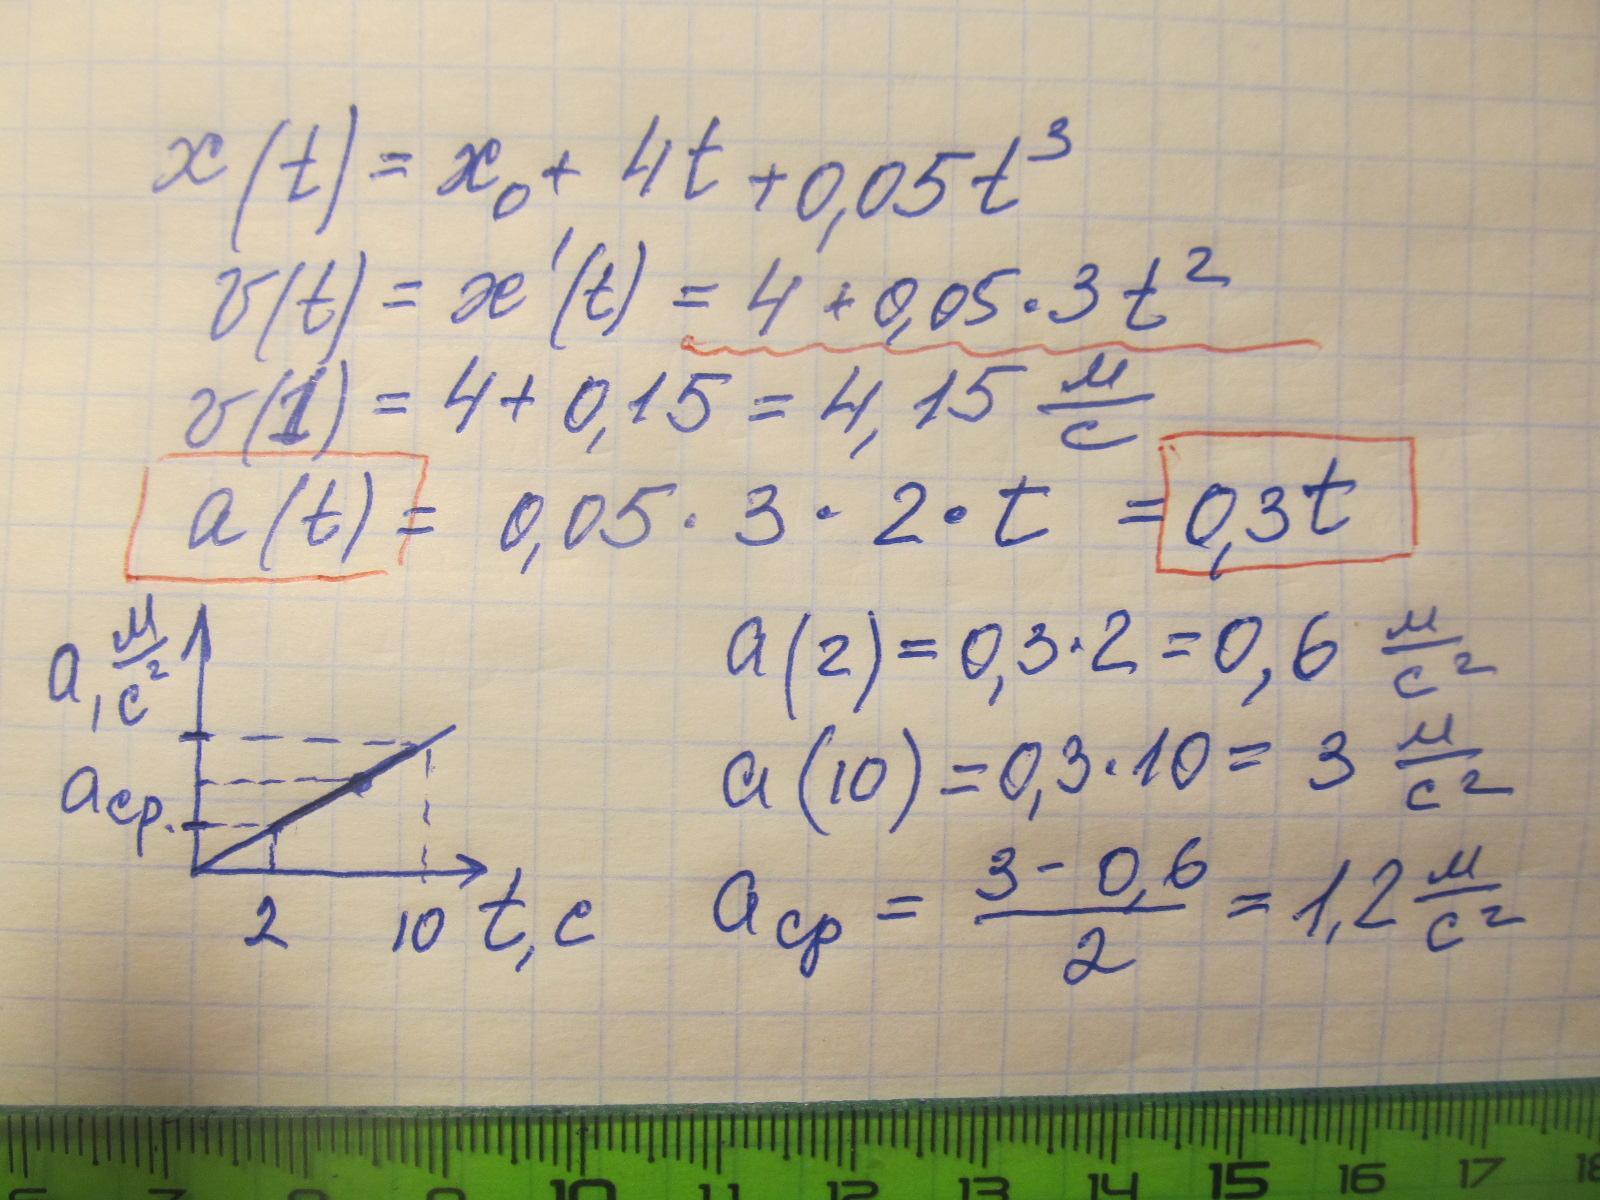 x(t) = x₀ + 4t + 0,05t³
v(t) = x'(t) = 4 + 0,05·3t²
v(1) = 4 + 0,15 = 4,15 м/с
a(t) = 0,05·3·2·t = 0,3t
a, м/с²
aср.
2 10 t, с
a(2) = 0,3·2 = 0,6 м/с²
a(10) = 0,3·10 = 3 м/с²
aср = (3 - 0,6)/2 = 1,2 м/с²
10 11 12 13 14 15 16 17 18